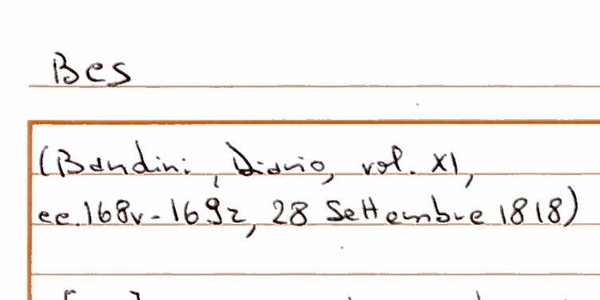 Bes
(Bandini, Diario, vol. XI,
cc. 168v - 169r, 28 Settembre 1818)